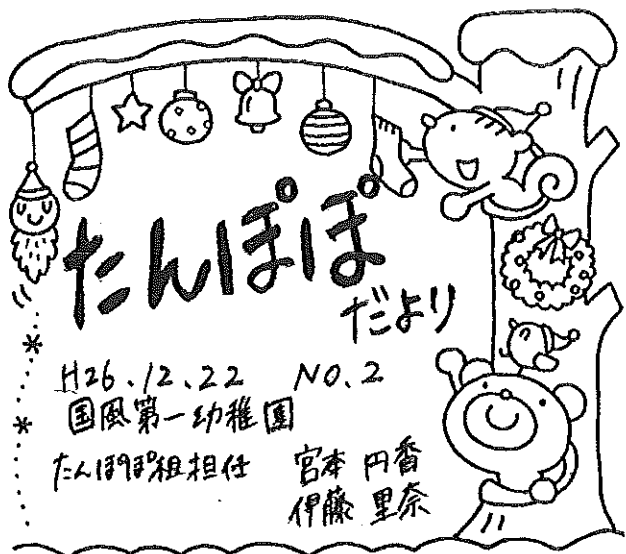 たんぽぽ
だより
H26.12.22 NO.2
国風第一幼稚園
たんぽぽ組担任 宮本 円香
伊藤 里奈